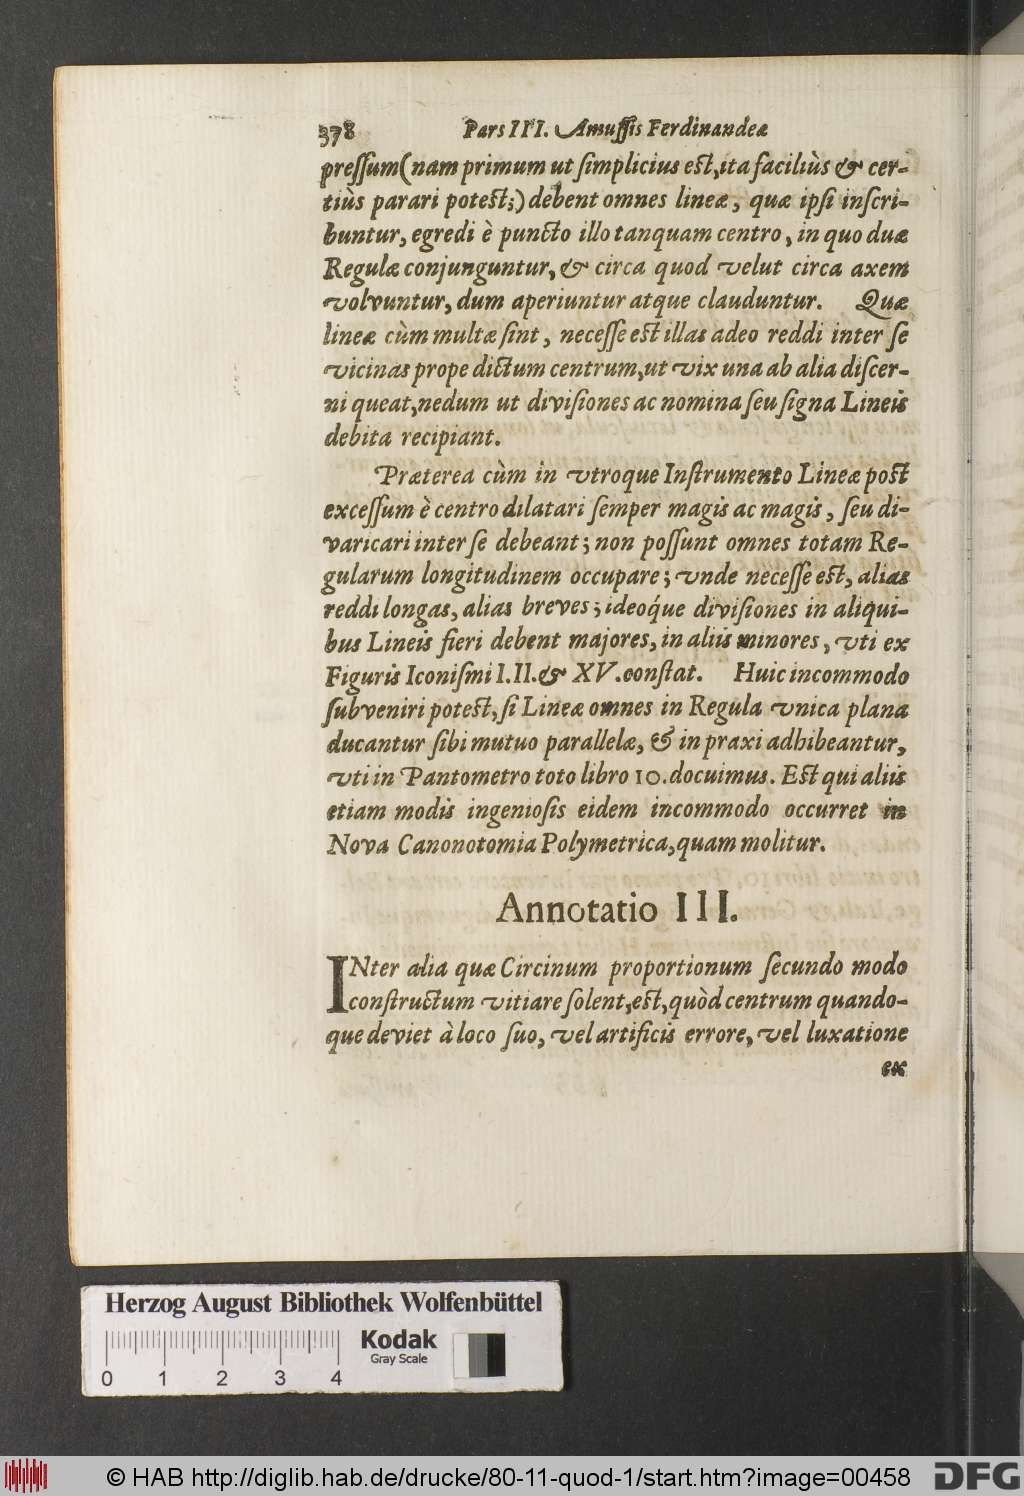 378 Pars III. Amuſſis Ferdinandeæ
preſſum (nam primum ut ſimplicius eſt, ita faciliùs & cer-
tiùs parari poteſt;) debent omnes lineæ, quæ ipſi inſcri-
buntur, egredi è puncto illo tanquam centro, in quo duæ
Regulæ conjunguntur, & circa quod velut circa axem
volvuntur, dum aperiuntur atque clauduntur. Quæ
lineæ cùm multæ ſint, neceſſe eſt illas adeo reddi inter ſe
vicinas prope dictum centrum, ut vix una ab alia diſcer-
ni queat, nedum ut diviſiones ac nomina ſeu ſigna Lineis
debita recipiant.
Præterea cùm in vtroque Inſtrumento Lineæ poſt
exceſſum è centro dilatari ſemper magis ac magis, ſeu di-
varicari inter ſe debeant; non poſſunt omnes totam Re-
gularum longitudinem occupare; vnde neceſſe eſt, alias
reddi longas, alias breves; ideoq́ue diviſiones in aliqui-
bus Lineis fieri debent majores, in aliis minores, vti ex
Figuris Iconiſmi I. II. & XV. conſtat. Huic incommodo
ſubveniri poteſt, ſi Lineæ omnes in Regula vnica plana
ducantur ſibi mutuo parallelæ, & in praxi adhibeantur,
vti in Pantometro toto libro 10. docuimus. Eſt qui aliis
etiam modis ingenioſis eidem incommodo occurret in
Nova Canonotomia Polymetrica, quam molitur.
Annotatio III.
INter alia quæ Circinum proportionum ſecundo modo
conſtructum vitiare ſolent, eſt, quòd centrum quando-
que deviet à loco ſuo, vel artificis errore, vel luxatione
ex
Herzog August Bibliothek Wolfenbüttel
Kodak
Gray Scale
0 1 2 3 4
© HAB http://diglib.hab.de/drucke/80-11-quod-1/start.htm?image=00458
DFG